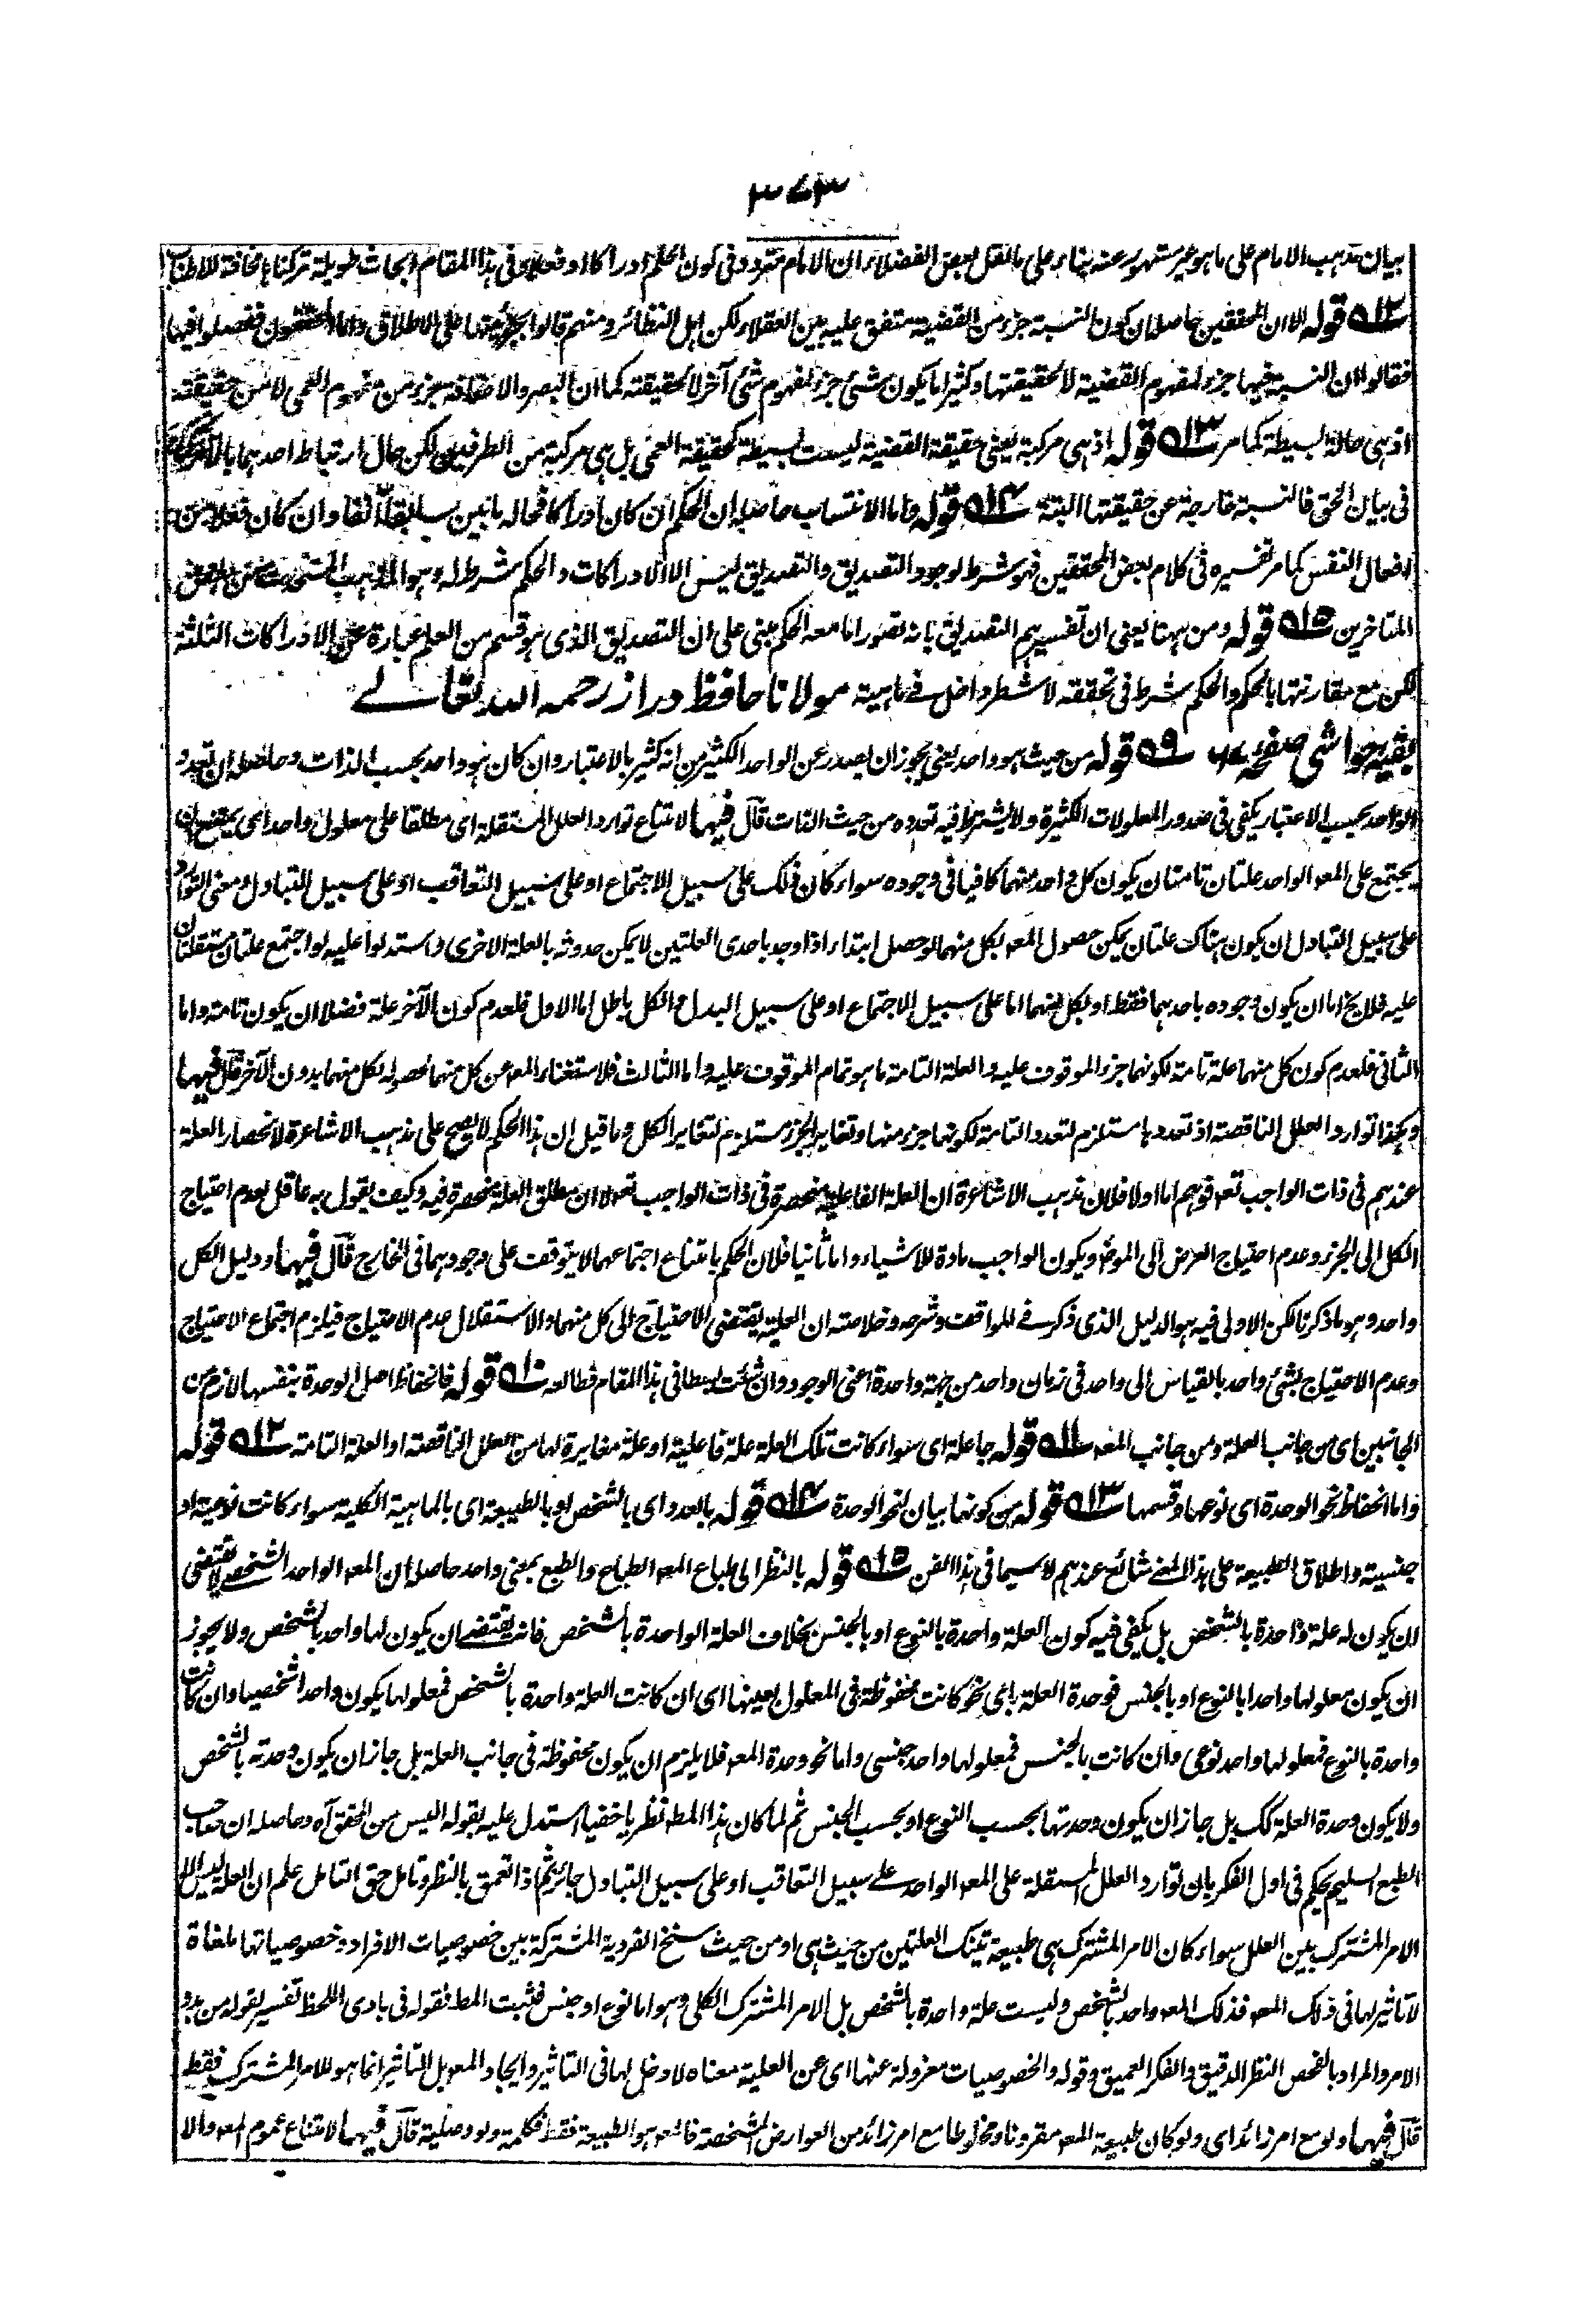 ٣٧٣
بيان مذهب الامام على ما هو غير مشهور عنه بناء على ما نقل بعض الفضلاء ان الامام متردد فى كون الحكم ادراكا او فعلا وفى هذا المقام ابحاث طويلة تركناها مخافة للاطناب
٥١٢ قوله الا ان المحققين حاصله ان كون النسبة جزء من القضية متفق عليه بين العقلاء لكن اهل الظاهر منهم قالوا بجزئيتها على الاطلاق واما المحققون ففصلوا فيها
فقالوا ان النسبة فيها جزء لمفهوم القضية لا لحقيقتها وكثيرا ما يكون شئ جزء لمفهوم شئ آخر لا لحقيقته كما ان البصر والاضافة جزء من مفهوم العمى لا من حقيقته
اذ هى حالة بسيطة كما مر ٥١٣ قوله اذ هى مركبة يعنى حقيقة القضية ليست بسيطة كحقيقة العمى بل هى مركبة من الطرفين لكن حال ارتباط احدهما بالآخر
فى بيان الحق فالنسبة خارجة عن حقيقتها البتة ٥١٤ قوله واما الانتساب حاصله ان الحكم ان كان ادراكا فحاله ما بين سابقا آنفا وان كان فعلا من
افعال النفس كما مر تفسيره فى كلام بعض المحققين فهو شرط لوجود التصديق والتصديق ليس الا الادراكات والحكم شرط له وهو المذهب المستحدث من بعض
المتاخرين ٥١٥ قوله ومن ههنا يعنى ان تفسيرهم التصديق بانه تصورا ما معه الحكم مبنى على ان التصديق الذى هو قسم من العلم عبارة عن الادراكات الثلثة
لكن مع مقارنتها بالحكم والحكم شرط فى تحققه لا شطر داخل فے ماهيته مولانا حافظ دراز رحمه الله تعالے
بقيه حواشى صفحه ٥٩ قوله من حيث هو واحد يعنى يجوز ان يصدر عن الواحد الكثير من انه كثير بالاعتبار وان كان هو واحد بحسب الذات وحاصله ان تعدد
الواحد بحسب الاعتبار يكفى فى صدور المعلولات الكثيرة ولا يشترط فيه تعدده من حيث الذات قال فيها لامتناع توارد العلل المستقلة اى مطلقا على معلول واحد اى يمتنع ان
يجتمع على المعہ الواحد علتان تامتان يكون كل واحد منهما كافيا فى وجوده سواء كان ذلك على سبيل الاجتماع او على سبيل التعاقب او على سبيل التبادل ومعنى التوارد
على سبيل التبادل ان يكون هناك علتان يمكن حصول المعہ بكل منهما لو حصل ابتداء اذا وجد باحدى العلتين لا يمكن حدوثه بالعلة الاخرى واستدلوا عليه لو اجتمع علتان مستقلتان
عليه فلا يخ اما ان يكون وجوده باحدهما فقط او بكل منهما اما على سبيل الاجتماع او على سبيل البدل والكل باطل اما الاول فلعدم كون الآخر علة فضلا ان يكون تامة واما
الثانى فلعدم كون كل منهما علة تامة لكونهما جزء الموقوف عليه والعلة التامة ما هو تمام الموقوف عليه واما الثالث فلاستغناء المعہ عن كل منهما لحصوله بكل منهما بدون الآخر قال فيها
وبكذا توارد العلل الناقصة اذ تعددها مستلزم لتعدد التامة لكونها جزء منها وتغاير الجزء مستلزم لتغاير الكل وما قيل ان هذا الحكم لا يصح على مذهب الاشاعرة لانحصار العلة
عندهم فى ذات الواجب تعہ فوهم اما اولا فلان مذهب الاشاعرة ان العلة الفاعلية منحصرة فى ذات الواجب تعہ لا ان مطلق العلة منحصرة فيه وكيف يقول به عاقل بعدم احتياج
الكل الى الجزء وعدم احتياج العرض الى الموضوع ويكون الواجب مادة للاشياء واما ثانيا فلان الحكم بامتناع اجتماعهما لا يتوقف على وجودهما فى الخارج قال فيها ودليل الكل
واحد وهو ما ذكرنا لكن الاولى فيه هو الدليل الذى ذكر فے المواقف وشرحه وخلاصته ان العلية يقتضى الاحتياج الى كل منهما والاستقلال عدم الاحتياج فيلزم اجتماع الاحتياج
وعدم الاحتياج بشئ واحد بالقياس الى واحد فى زمان واحد من جهة واحدة اعنى الوجود وان شئت بسطا فى هذا المقام فطالعه ٥١٠ قوله فانحفاظ اصل الوحدة بنفسها لازم من
الجانبين اى من جانب العلة ومن جانب المعہ ٥١١ قوله جاعلة اى سواء كانت تلك العلة علة فاعلية او علة مغايرة لها من العلل الناقصة او العلة التامة ٥١٢ قوله
واما انحفاظ نحو الوحدة اى نوعها وقسمها ٥١٣ قوله من كونها بيان لنحو الوحدة ٥١٤ قوله بالعدد اى بالشخص او بالطبيعة اى بالماهية الكلية سواء كانت نوعية او
جنسية واطلاق الطبيعة على هذا المعنے شائع عندهم لا سيما فى هذا الفن ٥١٥ قوله بالنظر الى طباع المعہ الطباع والطبع بمعنى واحد حاصله ان المعہ الواحد الشخصے لا يقتضى
ان يكون له علة واحدة بالشخص بل يكفى فيه كون العلة واحدة بالنوع او بالجنس بخلاف العلة الواحدة بالشخص فانه يقتضے ان يكون لها واحد بالشخص ولا يجوز
ان يكون معلولها واحدا بالنوع او بالجنس فوحدة العلة باى نحو كانت محفوظة فى المعلول بعينها اى ان كانت العلة واحدة بالشخص فمعلولها يكون واحدا شخصيا وان كانت
واحدة بالنوع فمعلولها واحد نوعى وان كانت بالجنس فمعلولها واحد جنسى واما نحو وحدة المعہ فلا يلزم ان يكون محفوظة فى جانب العلة بل جاز ان يكون وحدته بالشخص
ولا يكون وحدة العلة كك بل جاز ان يكون وحدتها بحسب النوع او بحسب الجنس ثم لما كان هذا المطہ نظريا خفيا استدل عليه بقوله اليس من المحقق آه وحاصله ان صاحب
الطبع السليم يحكم فى اول الفكر بان توارد العلل المستقلة على المعہ الواحد علے سبيل التعاقب او على سبيل التبادل جائز ثم اذا تعمق بالنظر وتامل حق التامل علم ان العلة ليس الا
الامر المشترك بين العلل سواء كان الامر المشترك هى طبيعة تينك العلتين من حيث هى او من حيث سنخ الفردية المشتركة بين خصوصيات الافراد وخصوصياتها ملغاة
لا تاثير لها فى ذلك المعہ فذلك المعہ واحد بالشخص وليست علة واحدة بالشخص بل الامر المشترك الكلى وهو اما نوع او جنس فثبت المطہ فقوله فى بادى اللحظ تفسير لقوله من بدو
الامر والمراد بالفحص النظر الدقيق والفكر العميق وقوله والخصوصيات معزولة عنها اى عن العلية معناه لا دخل لها فى التاثير وايجاد المعہ بل التاثير انما هو للامر المشترك فقط
قال فيها ولو مع امر زائد اى ولو كان طبيعة المعہ مقرونا ومخلوطا مع امر زائد من العوارض المشخصة فالمعہ هو الطبيعة فقط فكلمة ولو وصلية قال فيها لامتناع عموم المعہ والا